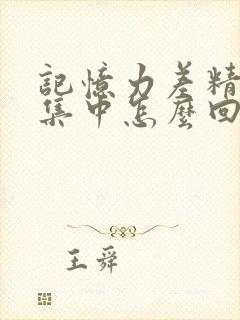 記憶力差精
集中怎麼回
王舜